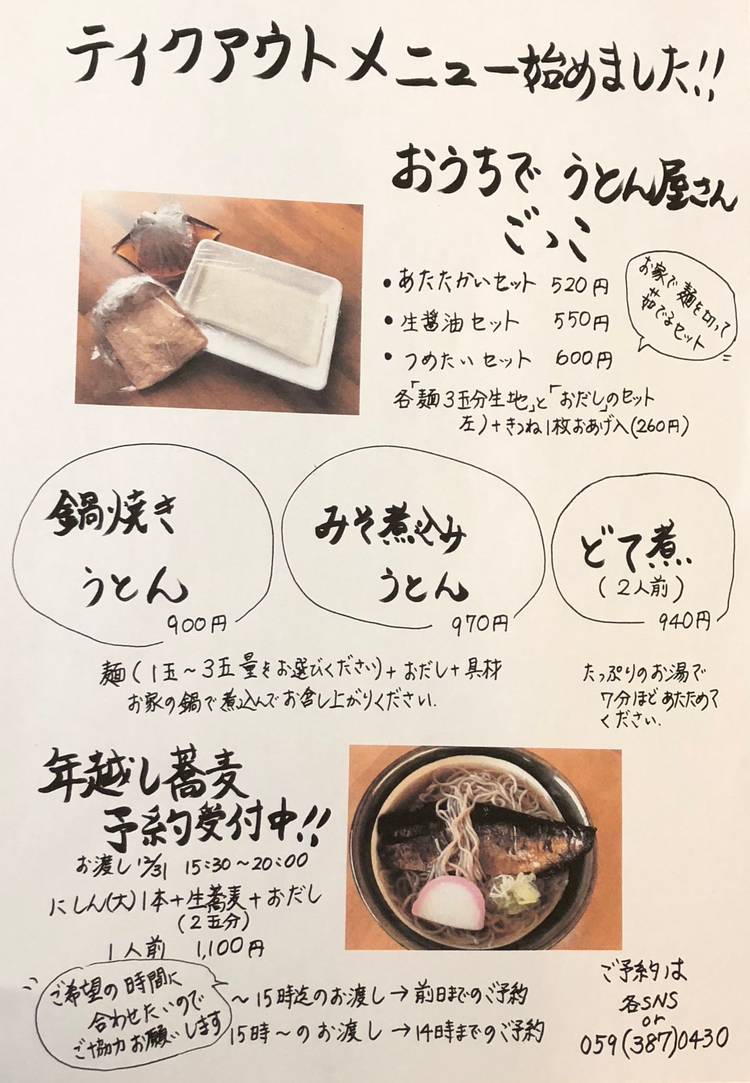 テイクアウトメニュー始めました!!
おうちで うどん屋さん
ごっこ
・あたたかいセット 520円
・生醤油セット 550円
・つめたいセット 600円
お家で麺を切って
茹でるセット
各「麺3玉分生地」と「おだし」のセット
左)+きつね1枚おあげ入(260円)
鍋焼き
うどん
900円
みそ煮込み
うどん
970円
どて煮
(2人前)
940円
麺(1玉〜3玉量をお選びください)+おだし+具材
お家の鍋で煮込んでお召し上がりください.
たっぷりのお湯で
7分ほどあたためて
ください.
年越し蕎麦
予約受付中!!
お渡し 12/31 15:30〜20:00
にしん(大)1本+生蕎麦+おだし
(2玉分)
1人前 1,100円
ご希望の時間に
合わせたいので
ご協力お願いします
〜15時迄のお渡し→前日までのご予約
15時〜のお渡し→14時までのご予約
ご予約は
各SNS
or
059(387)0430